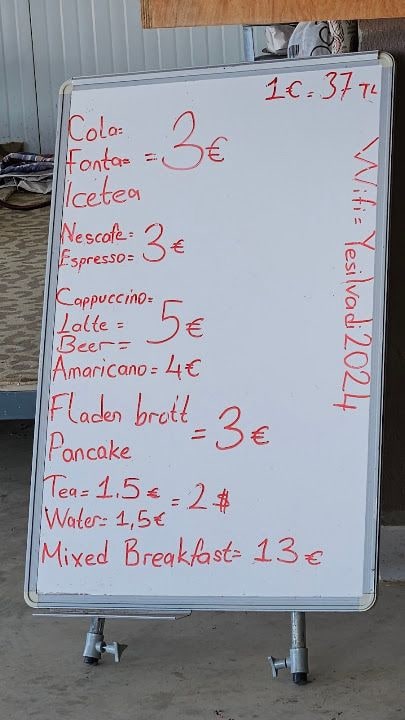 1€ = 37 TL
Cola=
Fanta= = 3€
Icetea
Nescafe=
Espresso= 3€
Cappuccino=
Latte = 5€
Beer=
Amaricano = 4€
Fladen brott
Pancake = 3€
Tea= 1.5 € = 2 $
Water= 1,5€
Mixed Breakfast= 13 €
Wifi= Yesilvadi2024